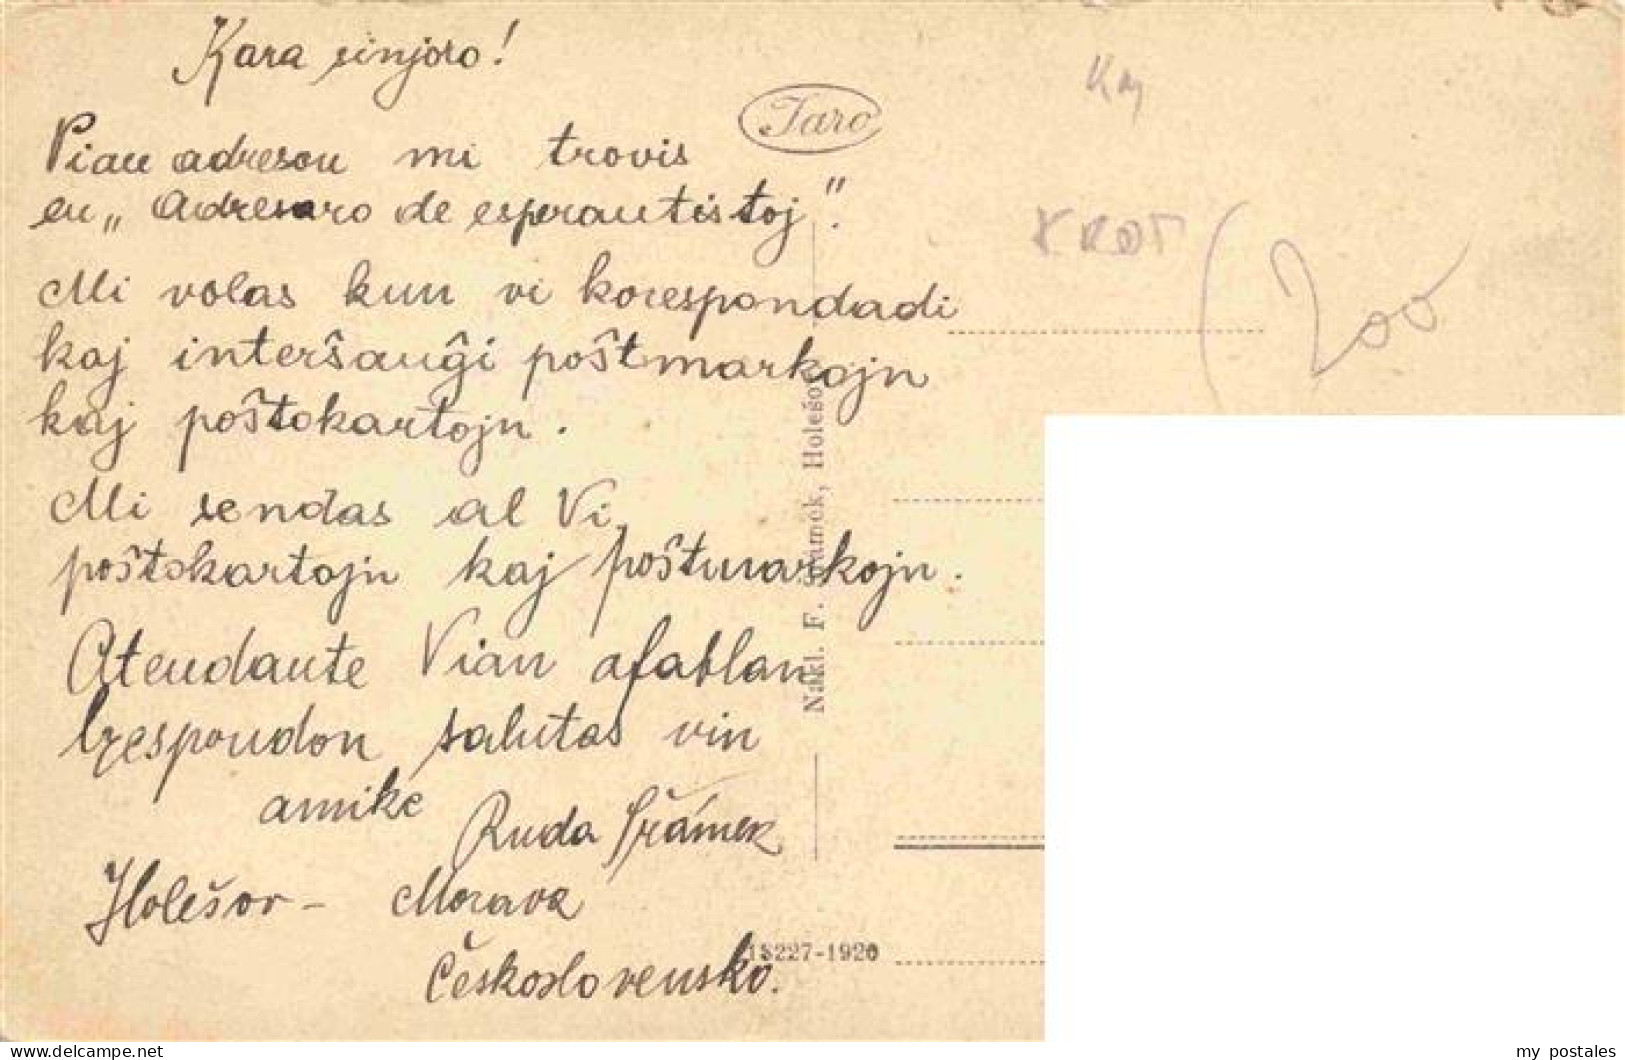 Kara sinjoro!
Vian adreson mi trovis
en „Adresaro de esperantistoj".
Mi volas kun vi korespondadi
kaj interŝanĝi poŝtmarkojn
kaj poŝtokartojn.
Mi sendas al Vi
poŝtokartojn kaj poŝtmarkojn.
Atendante Vian afablan
respondon salutas vin
amike Ruda Šrámek
Holešov - Morava
Československo.
Faro
Nakl. F. Šrámek, Holešov
18227-1920
Kaj
KROT
200
my_postales